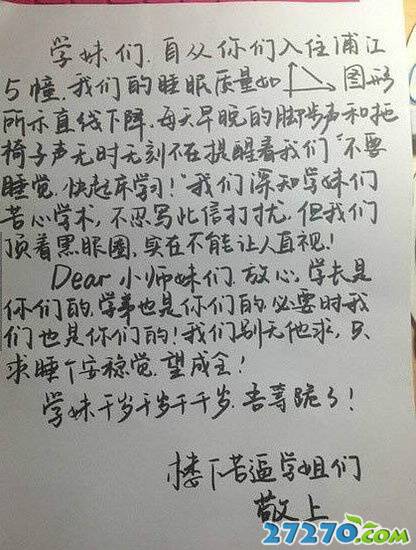 学妹们，自从你们入住浦江
5幢，我们的睡眠质量如 图形
所示直线下降，每天早晚的脚步声和拖
椅子声无时无刻不在提醒着我们“不要
睡觉，快起床学习！”我们深知学妹们
苦心学术，不忍写此信打扰，但我们
顶着黑眼圈，实在不能让人直视！
Dear 小师妹们，放心，学长是
你们的，学弟也是你们的，必要时我
们也是你们的！我们别无他求，只
求睡个安稳觉，望成全！
学妹千岁千岁千千岁，吾等跪了！
楼下苦逼学姐们
敬上
27270.com